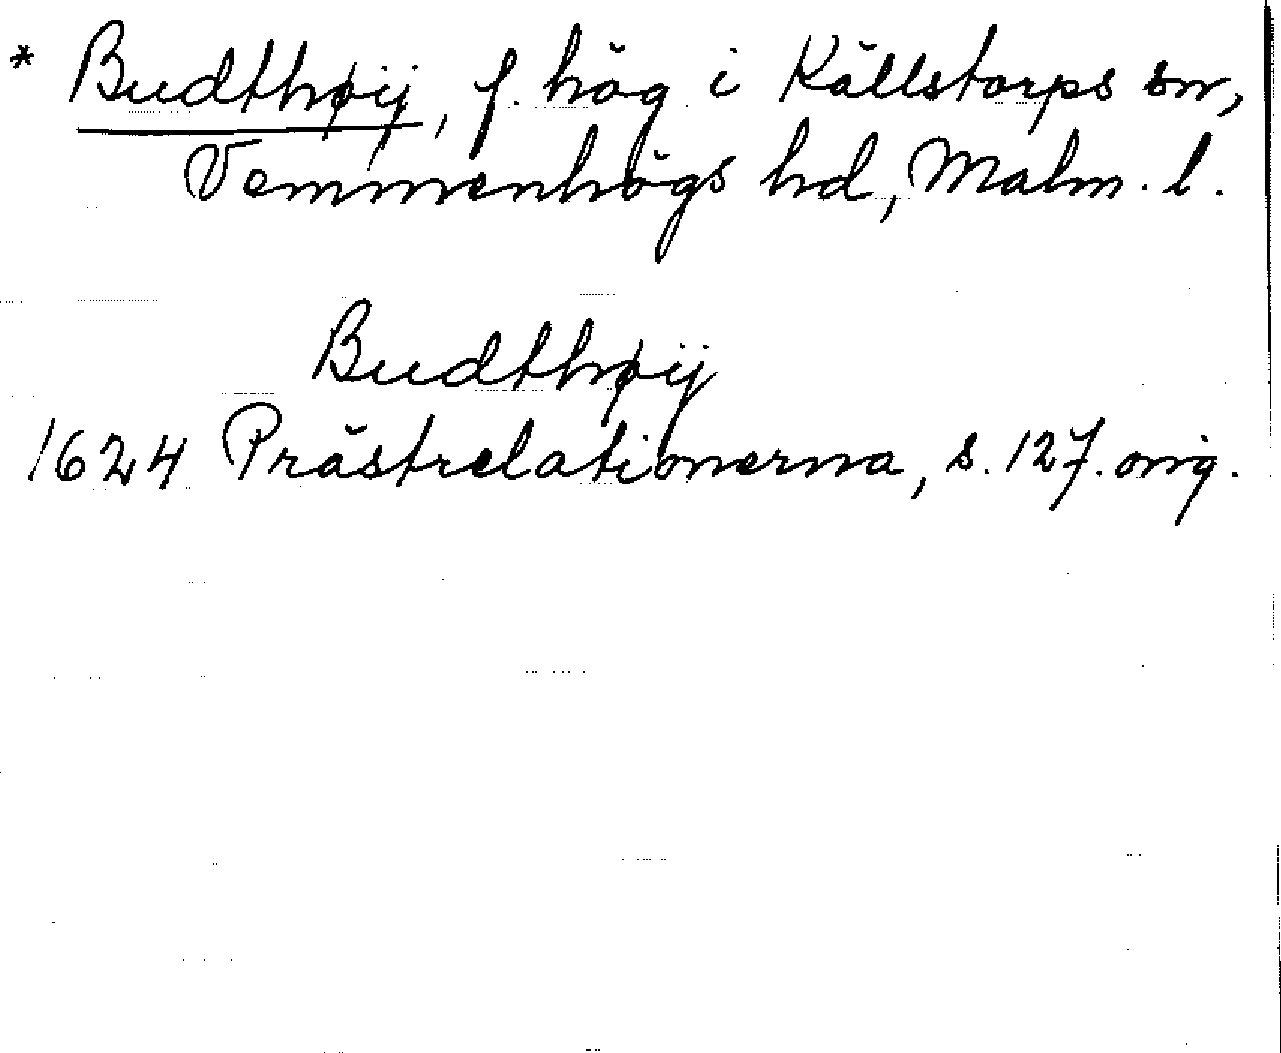 * Budthøij, f. hög i Källstorps sn,
Vemmenhögs hd, Malm. l.
Budthøij
1624 Prästrelationerna, s. 127. orig.